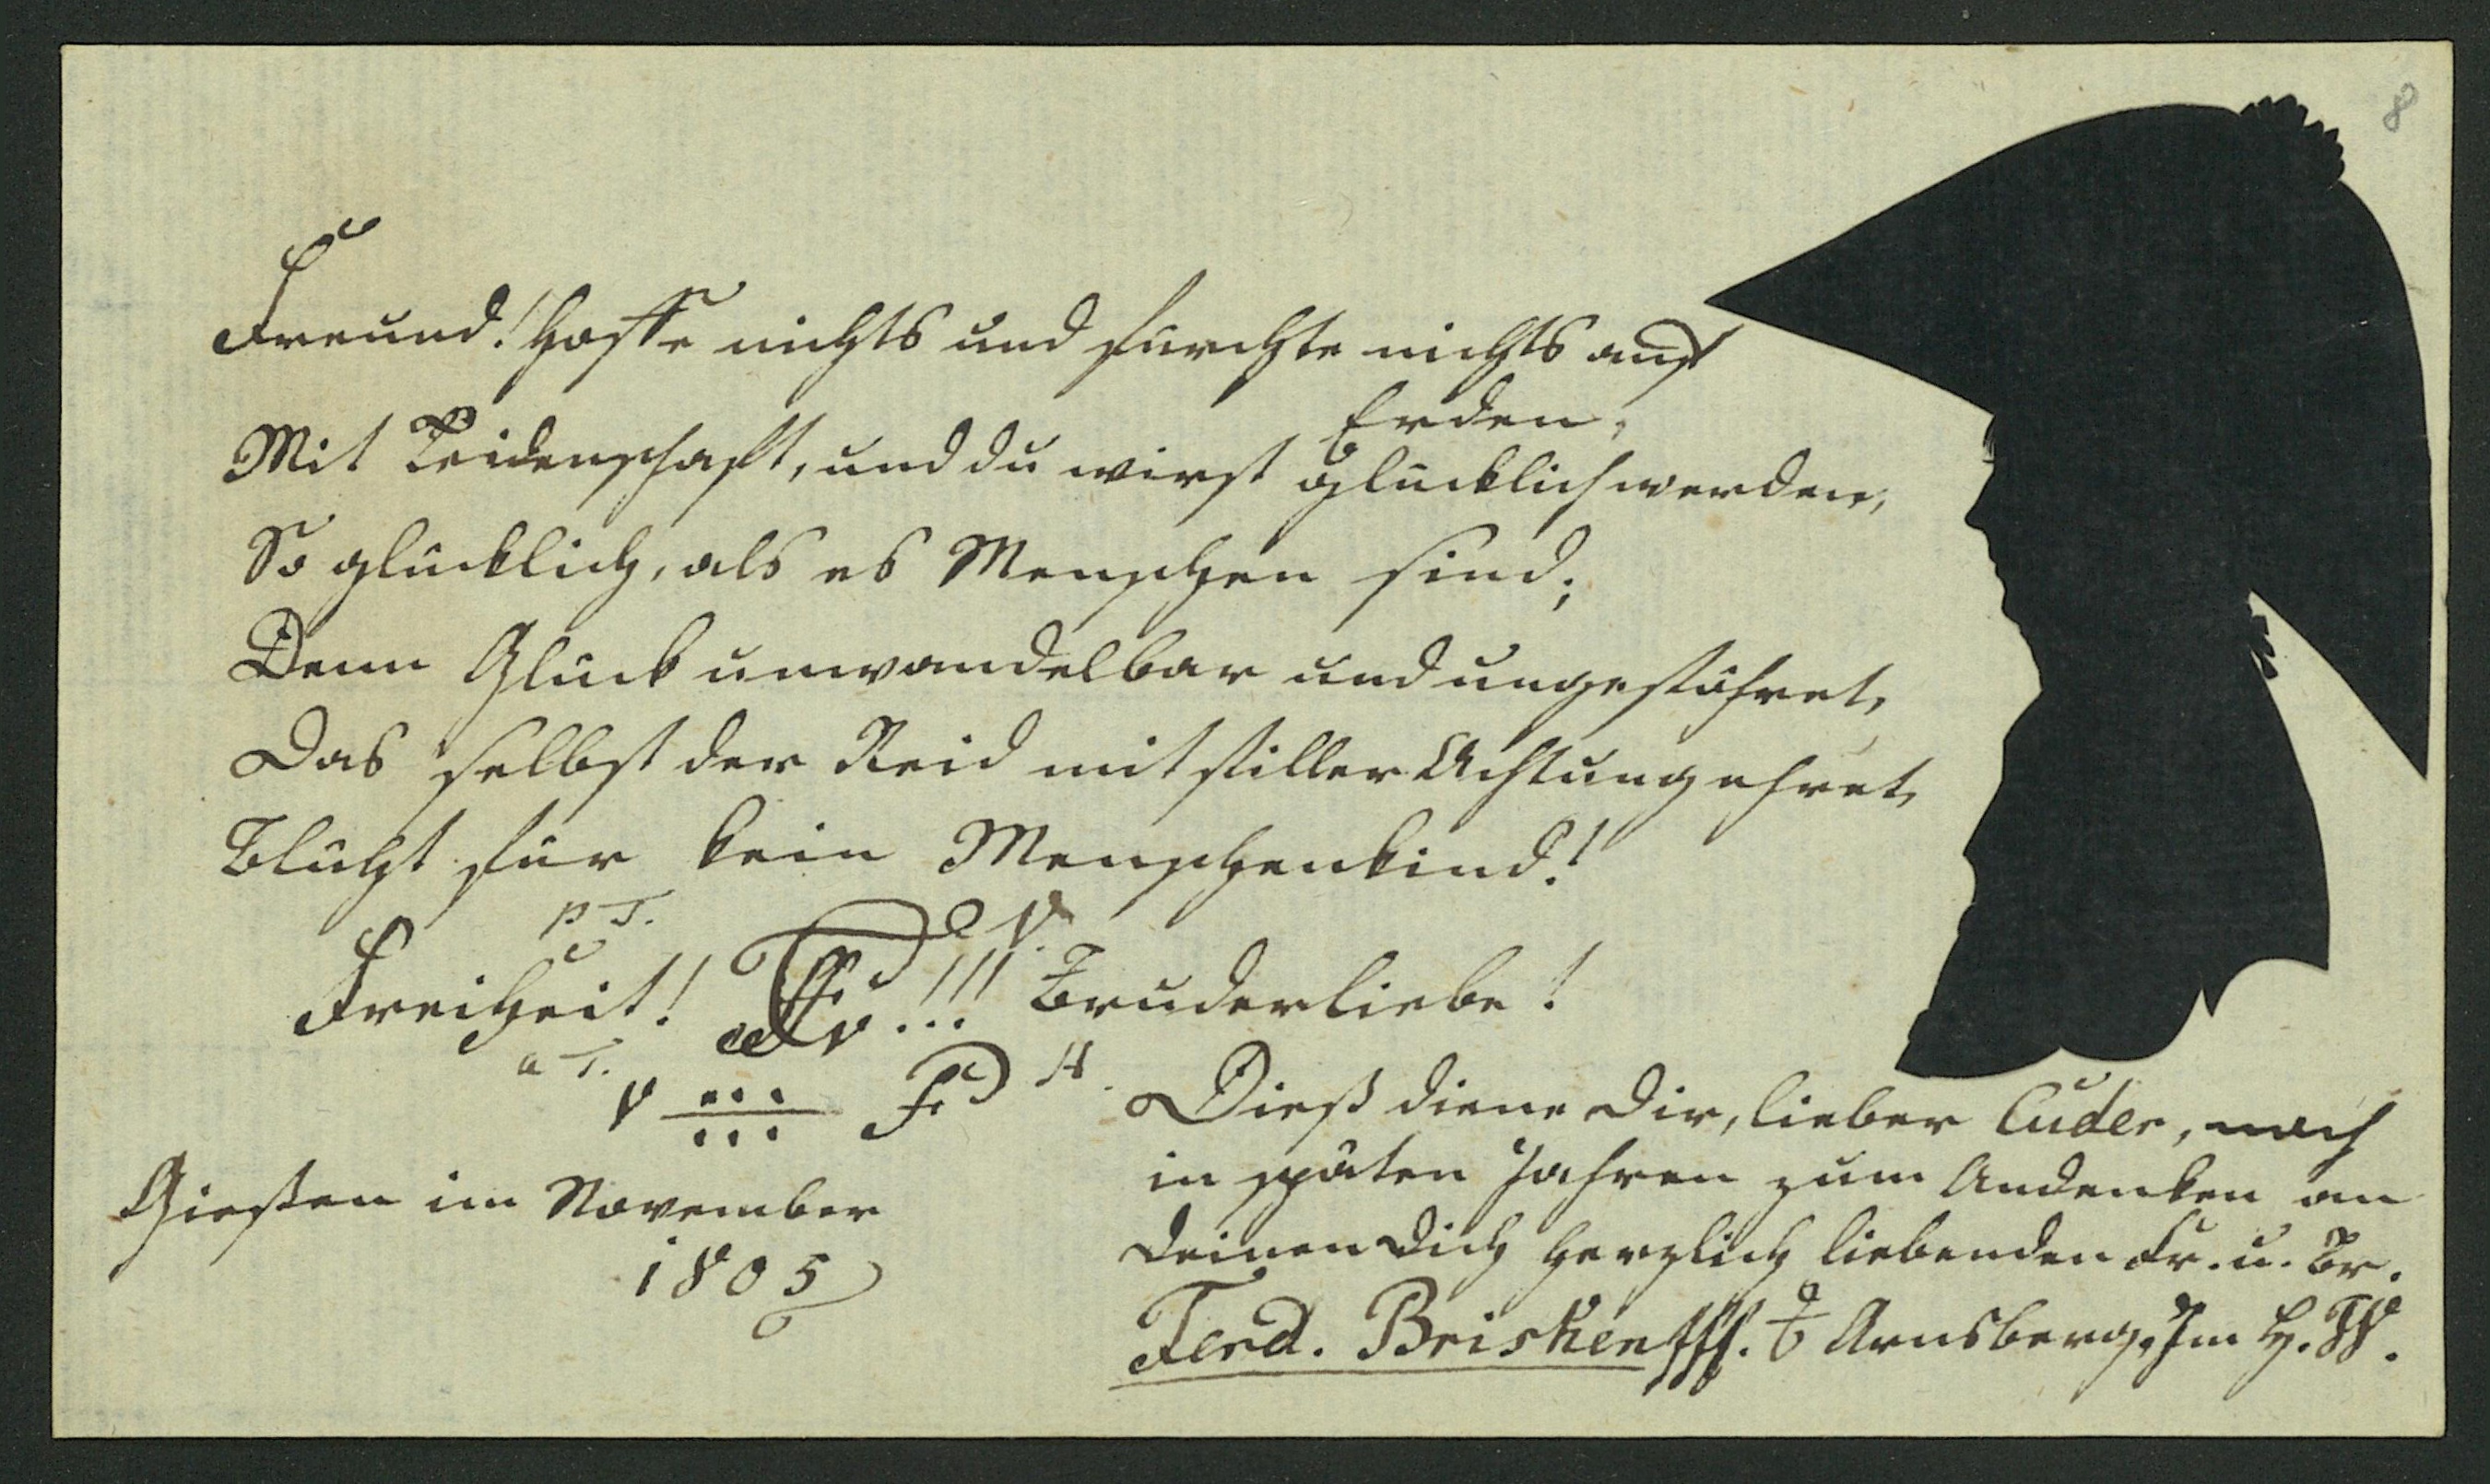 8
Freund! Hoffe nichts und fürchte nichts auf
Erden,
Mit Leidenschaft, und du wirst glücklich werden,
So glücklich, als es Menschen sind;
Denn Glück unwandelbar und ungestöhret,
Das selbst der Neid mit stiller Achtung ehret,
Blüht für kein Menschenkind!
p T. V.
Freiheit! !!! Bruderliebe!
a T. H.
V
Giessen im November
1805
Dieß diene Dir, lieber Cuder, noch
in späten Jahren zum Andenken an
Deinen Dich herzlich liebenden Fr. u. Br.
Ferd. Brisken Arnsberg, Im H. W.